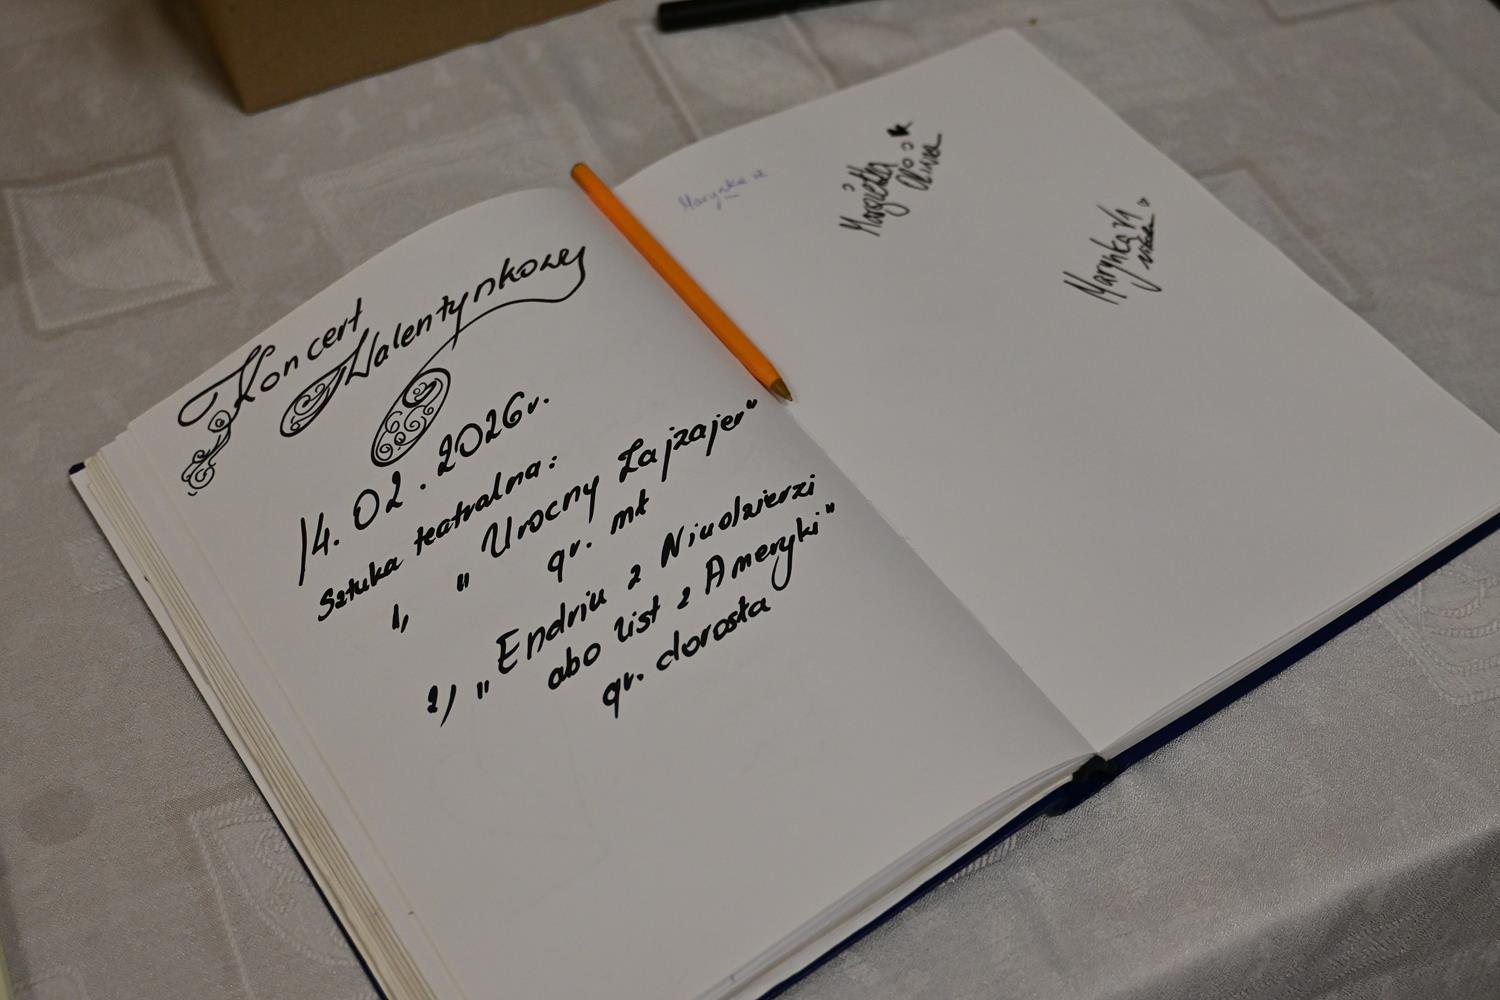 Koncert
Walentynkowy
14.02.2026r.
Sztuka teatralna:
1, „Urocny Lajzajer"
gr. mł
2, „Endriu z Niudzierzi
abo list z Ameryki"
gr. dorosła
Marynka
Marynka